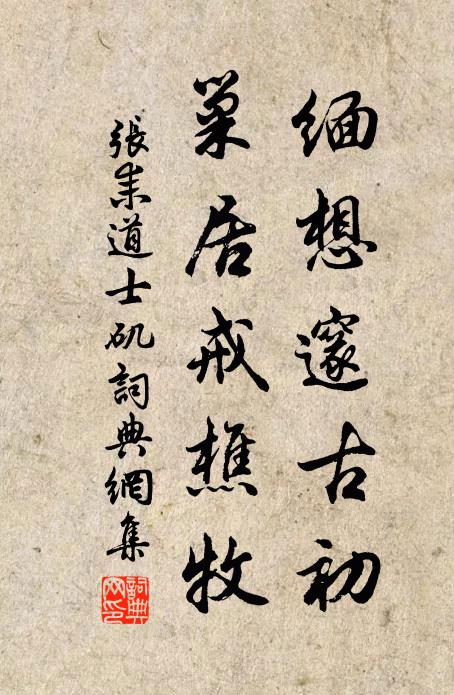 緬想邃古初
巢居戒樵牧
張耒道士矶詞典網集
詞典网印